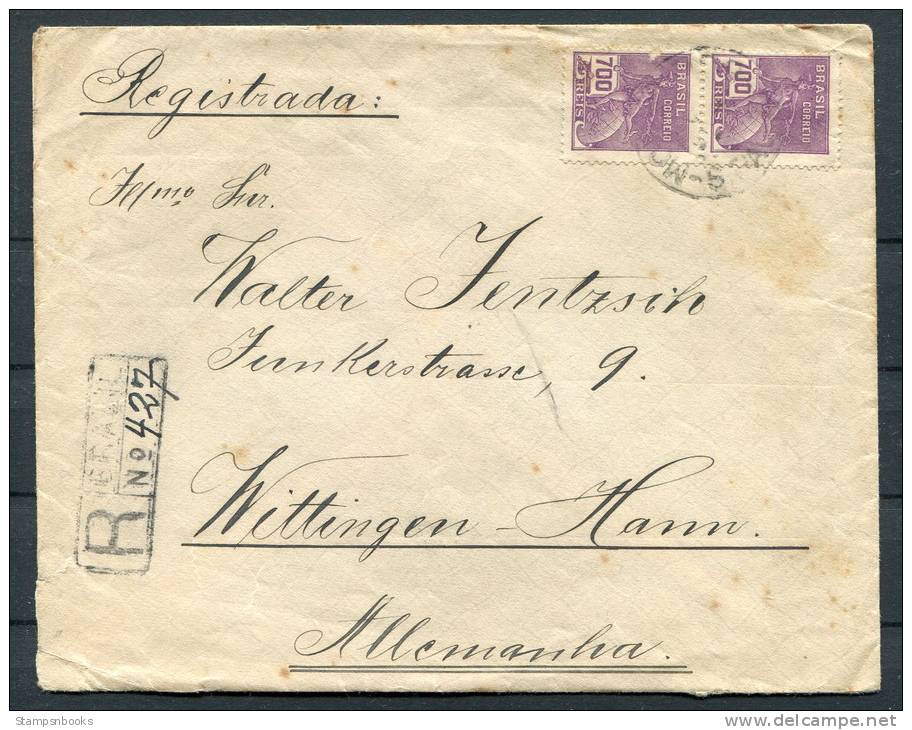 Registrada:
BRASIL
CORREIO
700
REIS
BRASIL
CORREIO
700
REIS
Illmo Snr.
Walter Jentzsch
Junkerstrasse, 9.
Wittingen - Hann.
Allemanha.
R
BRAZIL
No 427
Stampsnbooks
www.delcampe.net